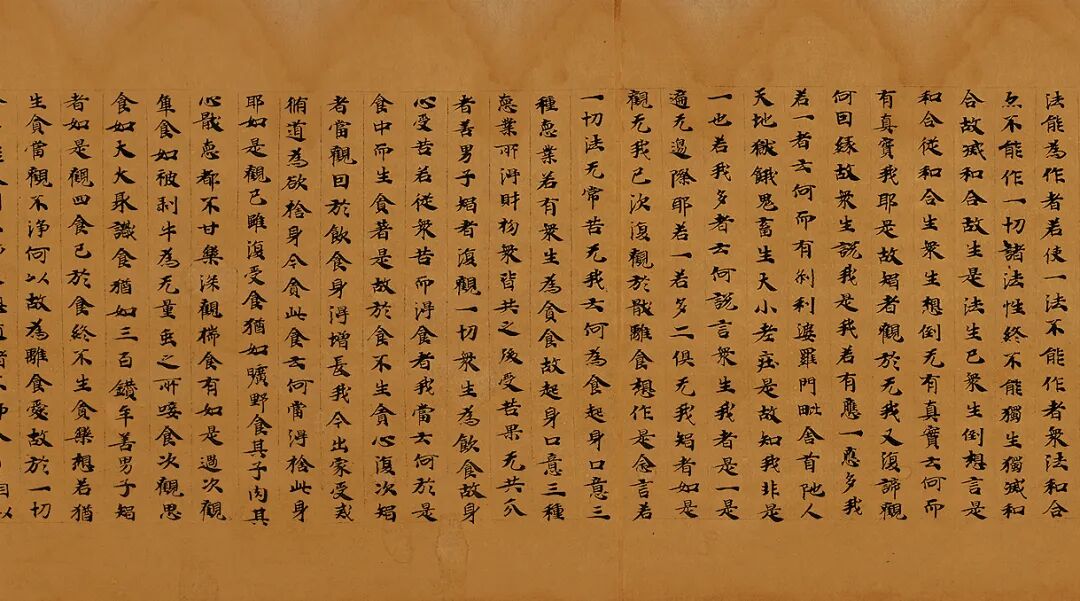 法能為作者若使一法不能作者衆法和合
亦不能作一切諸法性終不能獨生獨滅和
合故滅和合故生是法生已衆生倒想言是
和合從和合生衆生想倒无有真實云何而
有真實我耶是故智者觀於无我又復諦觀
何因縁故衆生說我是我若有應一應多我
若一者云何而有刹利婆羅門毗舍首陁人
天地獄餓鬼畜生大小老壯是故知我非是
一也若我多者云何說言衆生我者是一是
遍无邊際耶若一若多二俱无我智者如是
觀无我已次復觀於猒離食想作是念言若
一切法无常苦无我云何為食起身口意三
種惡業若有衆生為貪食故起身口意三種
惡業所得財物衆皆共之後受苦果无共分
者善男子智者復觀一切衆生為飲食故身
心受苦若從衆苦而得食者我當云何於是
食中而生貪著是故於食不生貪心復次智
者當觀因於飲食身得增長我今出家受戒
脩道為欲捨身今貪此食云何當得捨此身
耶如是觀已雖復受食猶如曠野食其子肉其
心猒惡都不甘樂深觀揣食有如是過次觀
觸食如被剥牛為无量虫之所唼食次觀思
食如大火聚識食猶如三百鑽矛善男子智
者如是觀四食已於食終不生貪樂想若猶
生貪當觀不淨何以故為離食愛故於一切